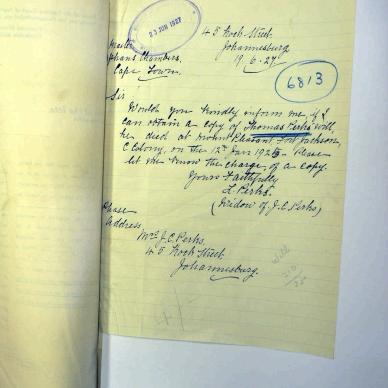 23 JUN 1927
45 Koch Street
Johannesburg
19.6.27
Master
Orphans Chambers,
Cape Town.
6813
Sir
Would you kindly inform me if I
can obtain a copy of Thomas Perks will,
he died at Mount Pleasant Fort Jackson,
C Colony, on the 12th Jan 192 Please
let me know the charge of a copy.
Yours Faithfully
L. Perks.
(Widow of J.C. Perks)
Please
Address,
Mrs J.C. Perks,
45 Koch Street
Johannesburg.